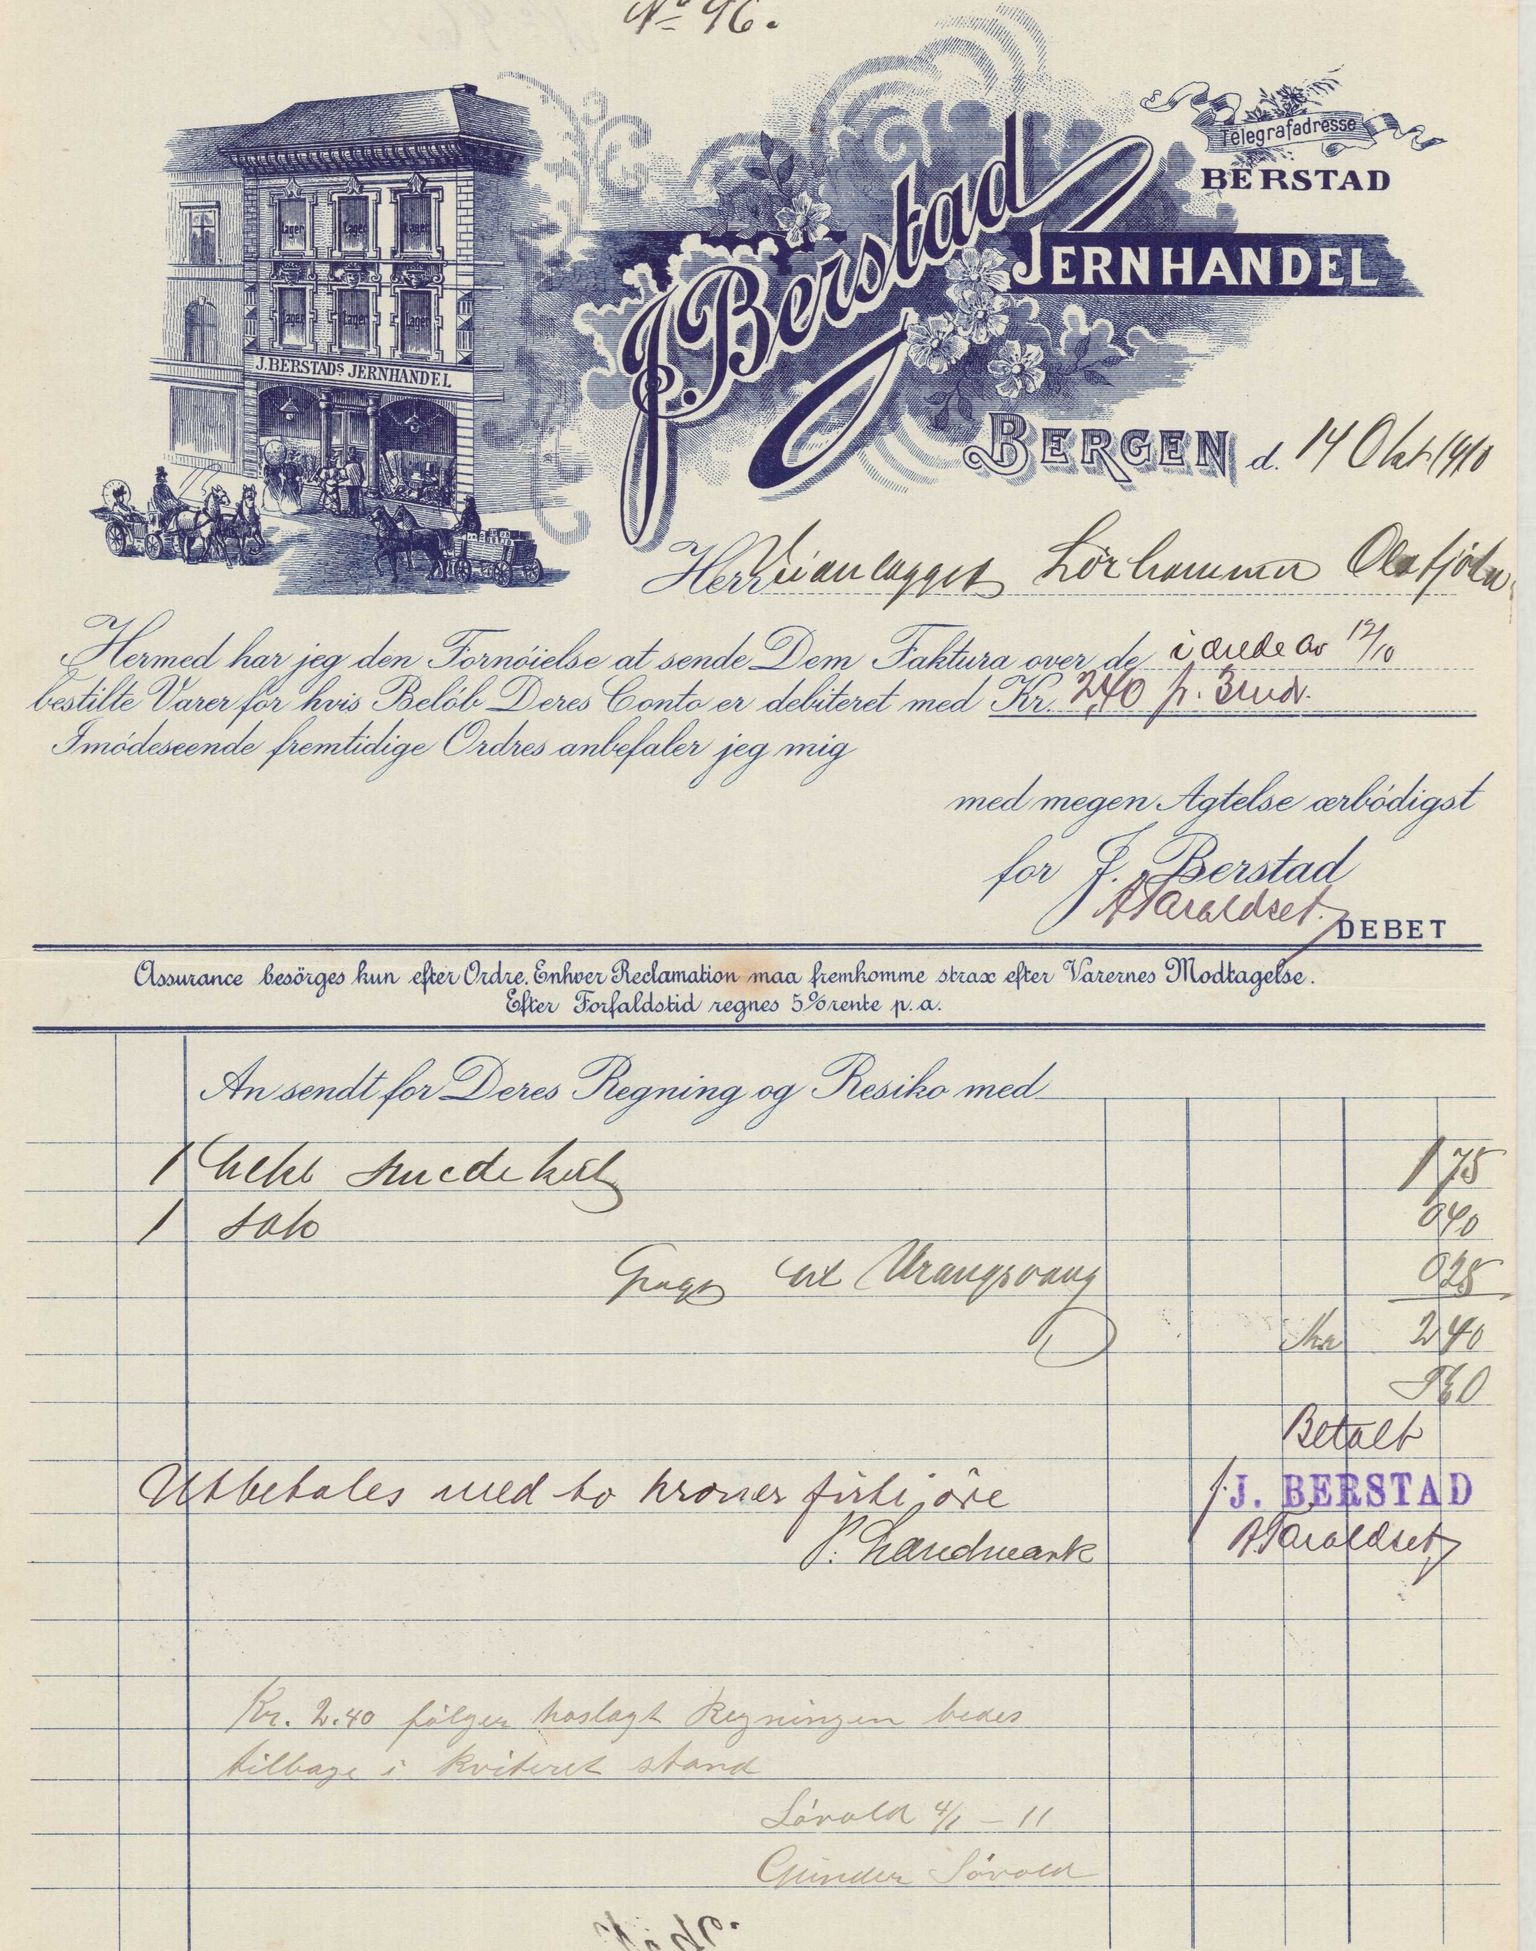 No 96.
Telegrafadresse
BERSTAD
J. Berstad
JERNHANDEL
Lager Lager Lager
Lager Lager Lager
J. BERSTADS JERNHANDEL
BERGEN d. 14 Okt 1910
Herr Veianlægget
Hermed har jeg den Fornöielse at sende Dem Faktura over de i ærede av 12/10
bestilte Varer for hvis Belöb Deres Conto er debiteret med Kr. 2,40 p. 3 md.
Imödeseende fremtidige Ordres anbefaler jeg mig
med megen Agtelse ærbödigst
for J. Berstad
A Taraldset
DEBET
Assurance besörges kun efter Ordre. Enhver Reclamation maa fremkomme strax efter Varernes Modtagelse.
Efter Forfaldstid regnes 5% rente p. a.
An sendt for Deres Regning og Resiko med
1 hekt smedekul 1 75
1 sæk 0 40
Fragt til Vrangsvaag 0 25
Kr 2 40
Betalt
Utbetales med to kroner firti øre
f. J. BERSTAD
P. Landmark
A Taraldset
Kr. 2.40 følger hoslagt Regningen bedes
tilbage i kviteret stand
Løvold 4/1 - 11
Gunder Løvold